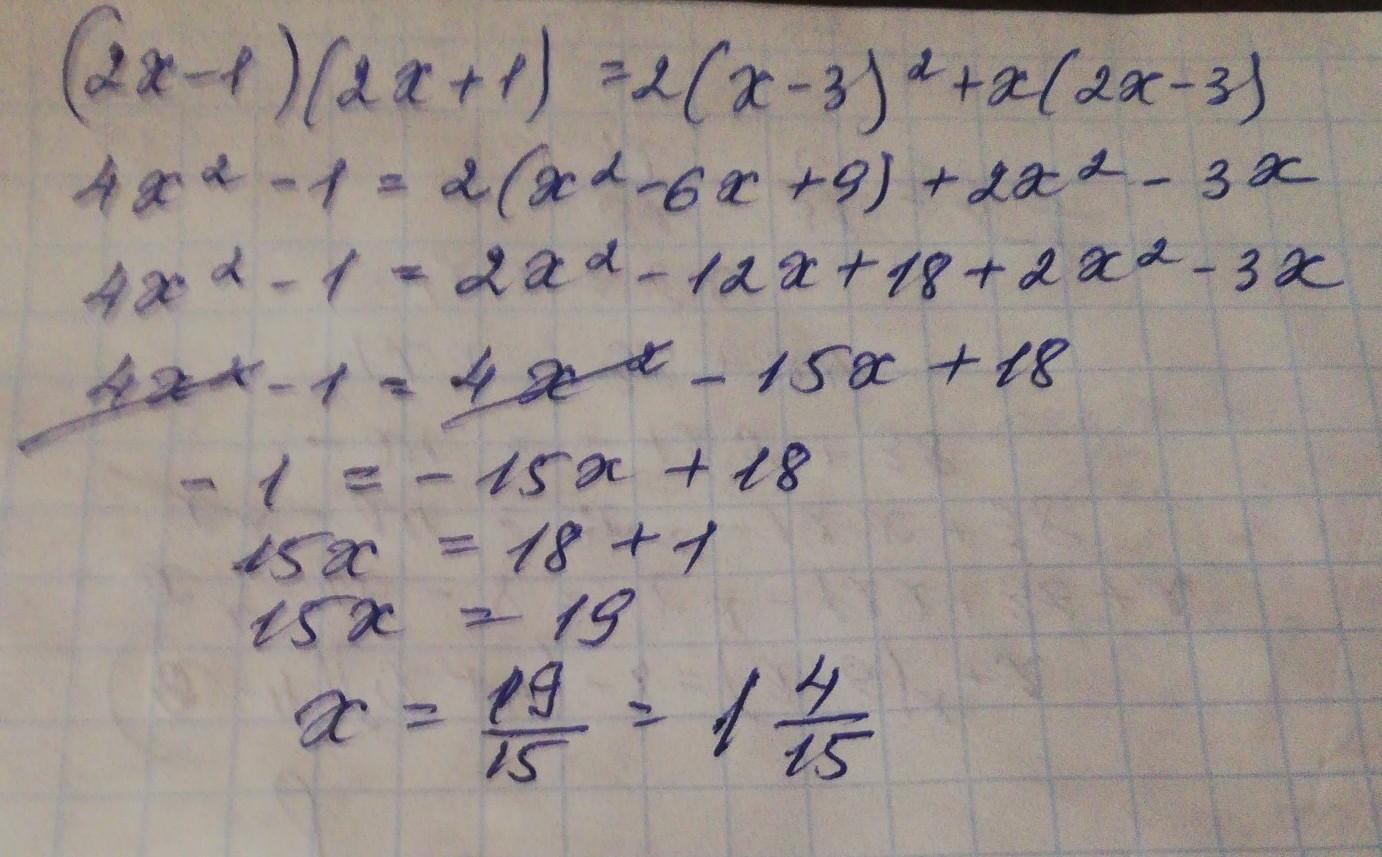 (2x-1)(2x+1) = 2(x-3)² + x(2x-3)
4x² - 1 = 2(x² - 6x + 9) + 2x² - 3x
4x² - 1 = 2x² - 12x + 18 + 2x² - 3x
4x² - 1 = 4x² - 15x + 18
- 1 = - 15x + 18
15x = 18 + 1
15x = 19
x = 19/15 = 1 4/15